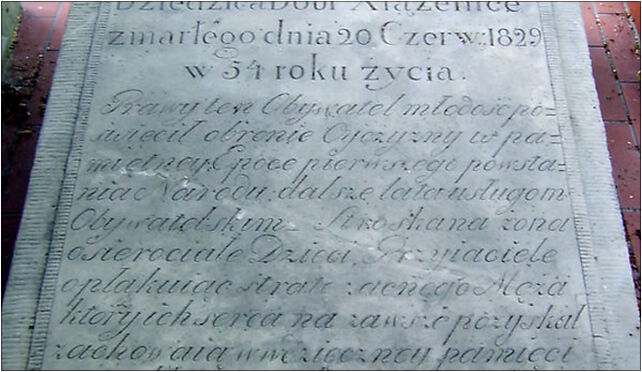 Dziedzica Dóbr Xiążenice
zmarłego dnia 20 Czerw: 1829
w 54 roku życia.
Prawy ten Obywatel młodość po=
święcił obronie Oyczyzny w pa=
miętney Epoce pierwszego powsta=
nia Narodu, dalsze lata usługom
Obywatelskim. Stroskana żona
osierociałe Dzieci, Przyiaciele
opłakuiąc stratę zacnego Męża
który ich serca na zawsze pozyskał
zachowaią w wdzięczney pamięci